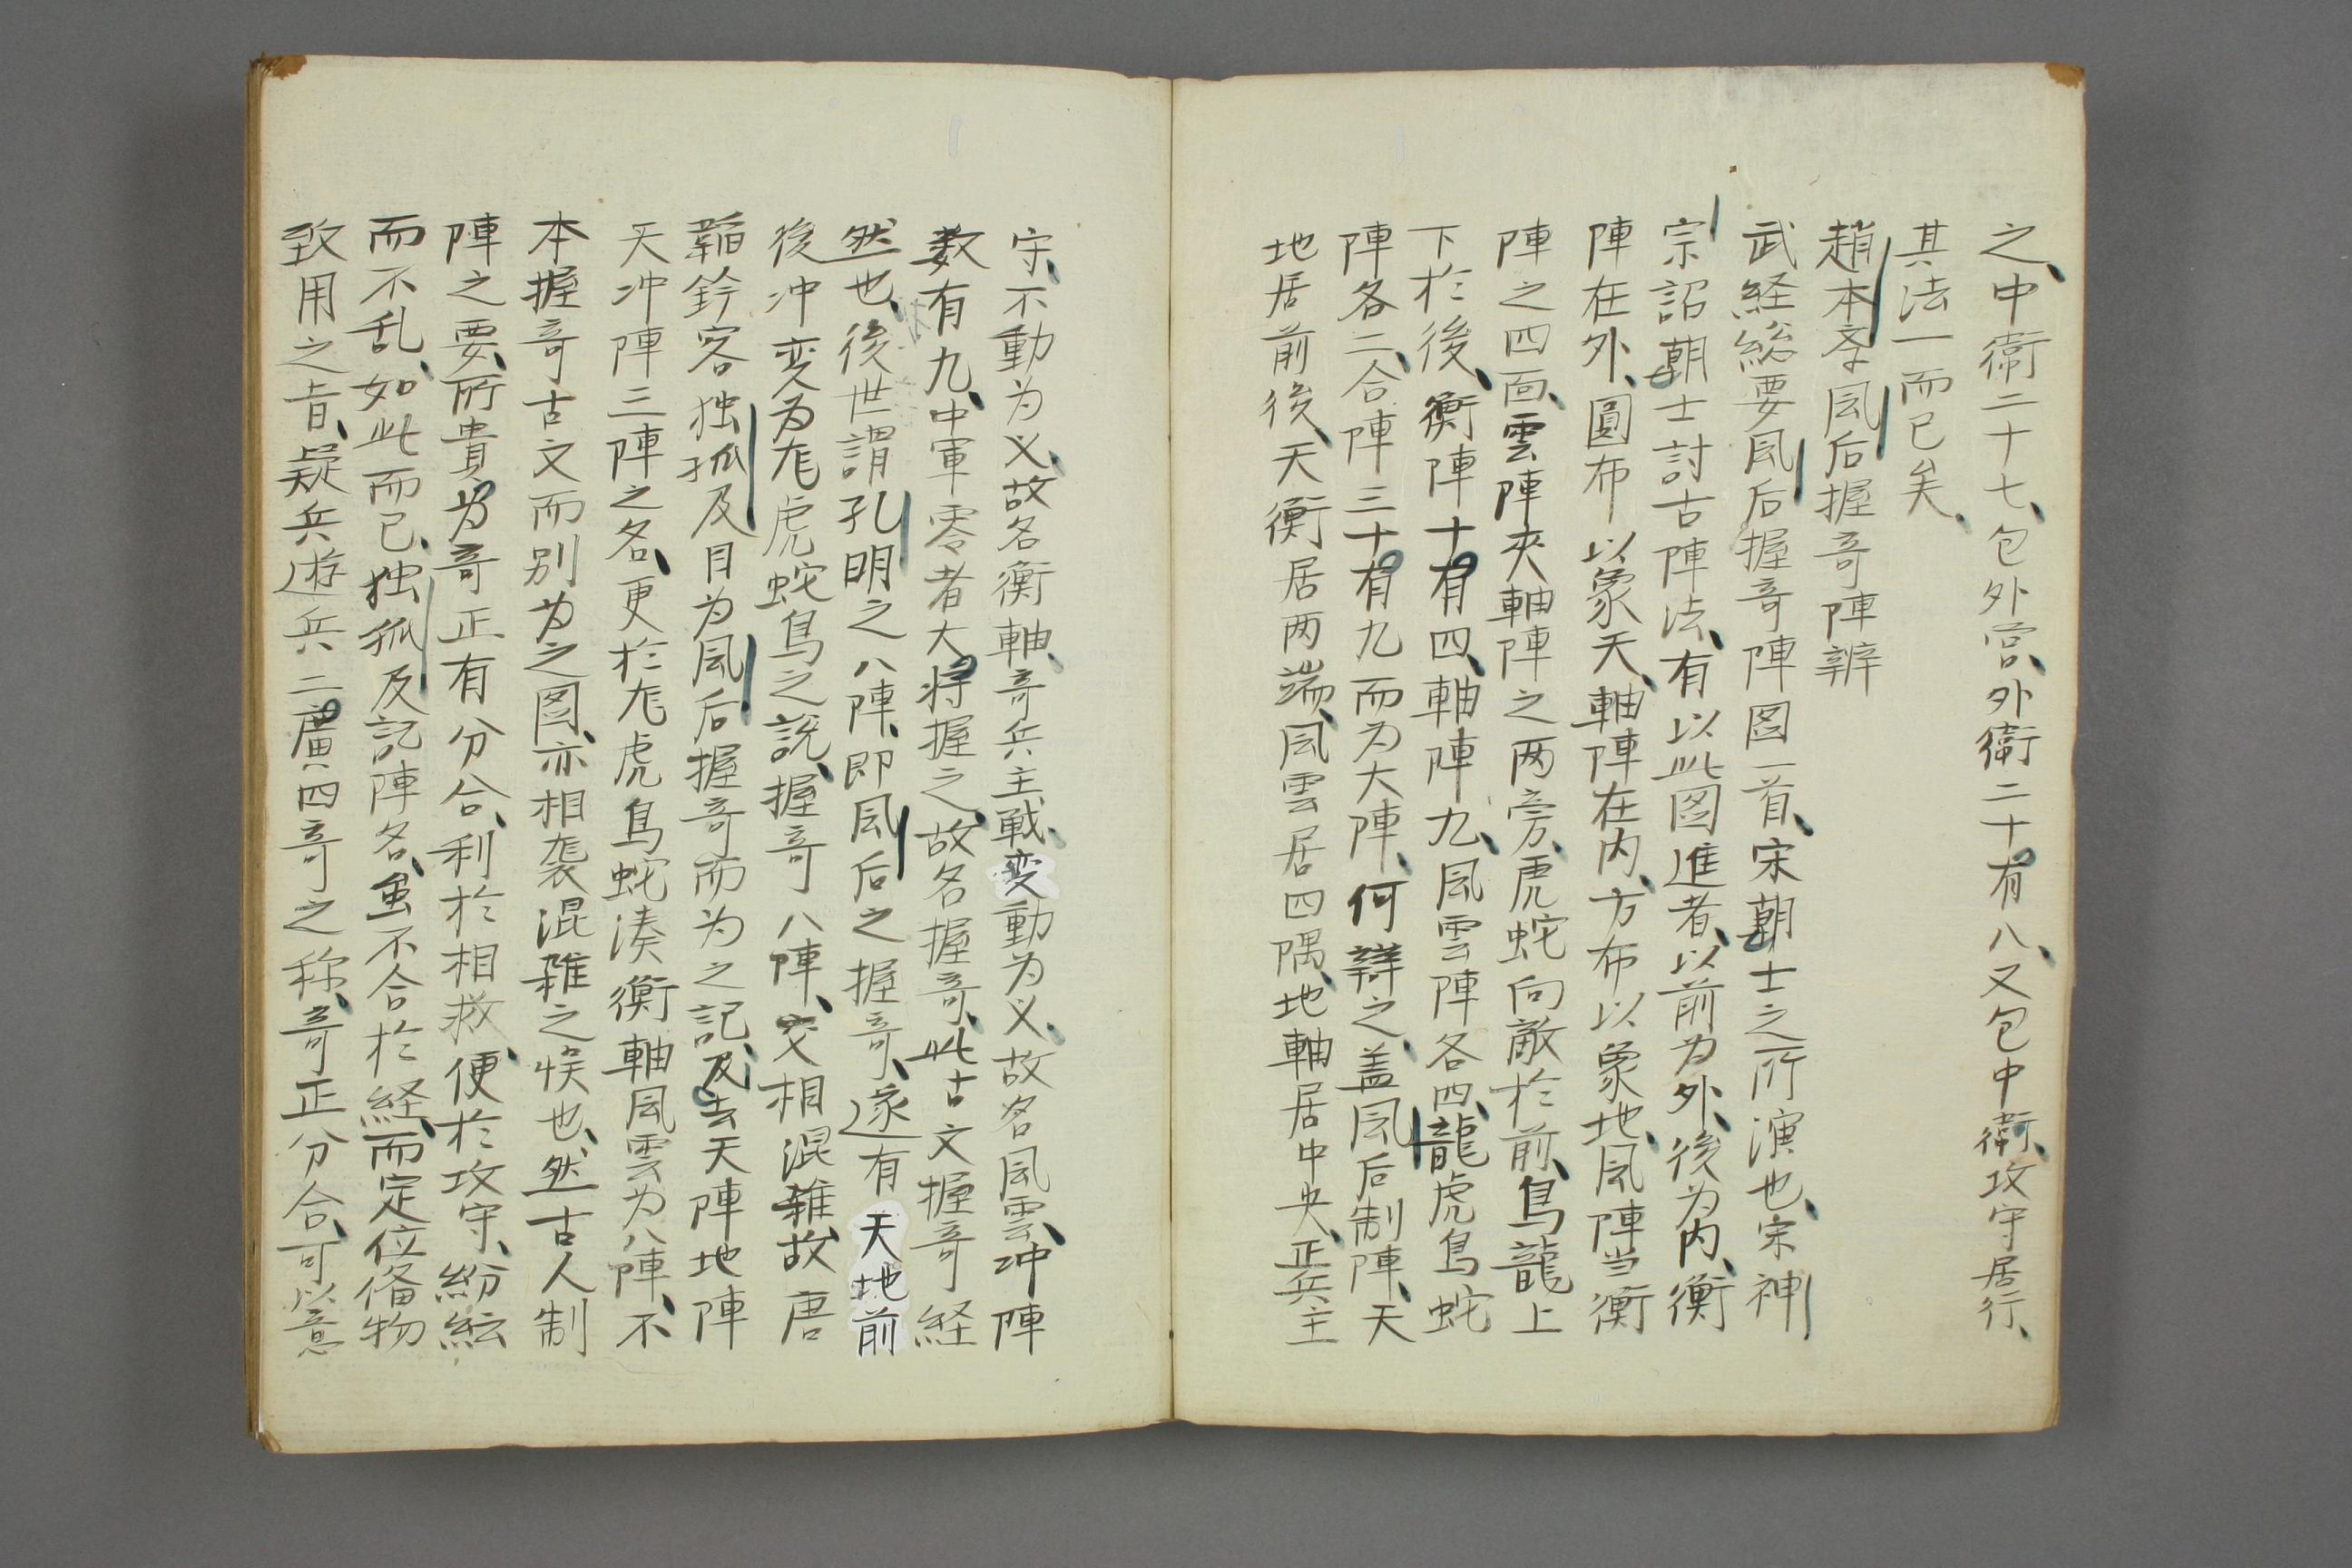 之、中衛二十七、包外营、外衛二十有八、又包中衛、攻守居行、
其法一而已矣、
趙本孝风后握奇陣辨
武経総要风后握奇陣图一首、宋朝士之所演也、宋神
宗詔朝士討古陣法、有以此图進者、以前为外、後为内、衡
陣在外、圓布以象天、軸陣在内、方布以象地、风陣当衡
陣之四面、雲陣夾軸陣之两旁、虎蛇向敵於前、鳥龍上
下於後、衡陣十有四、軸陣九、风雲陣各四、龍虎鳥蛇
陣各二、合陣三十有九而为大陣、何辯之、盖风后制陣、天
地居前後、天衡居两端、风雲居四隅、地軸居中央、正兵主
守、不動为义、故名衡軸、奇兵主戦、变動为义、故名风雲、冲陣
数有九、中軍零者大将握之、故名握奇、此古文握奇経
然也、後世謂孔明之八陣、即风后之握奇、遂有天地前
後冲变为龙虎蛇鳥之説、握奇八陣、交相混雜、故唐
韜鈐客独孤及目为风后握奇而为之記、及去天陣地陣
天冲陣三陣之名、更於龙虎鳥蛇湊衡軸风雲为八陣、不
本握奇古文而别为之图、亦相襲混雜之悞也、然古人制
陣之要、所貴为奇正有分合、利於相救、便於攻守、紛紜
而不乱、如此而已、独孤及記陣名、虽不合於経、而定位備物
致用之旨、疑兵遊兵二廣四奇之称、奇正分合、可以意